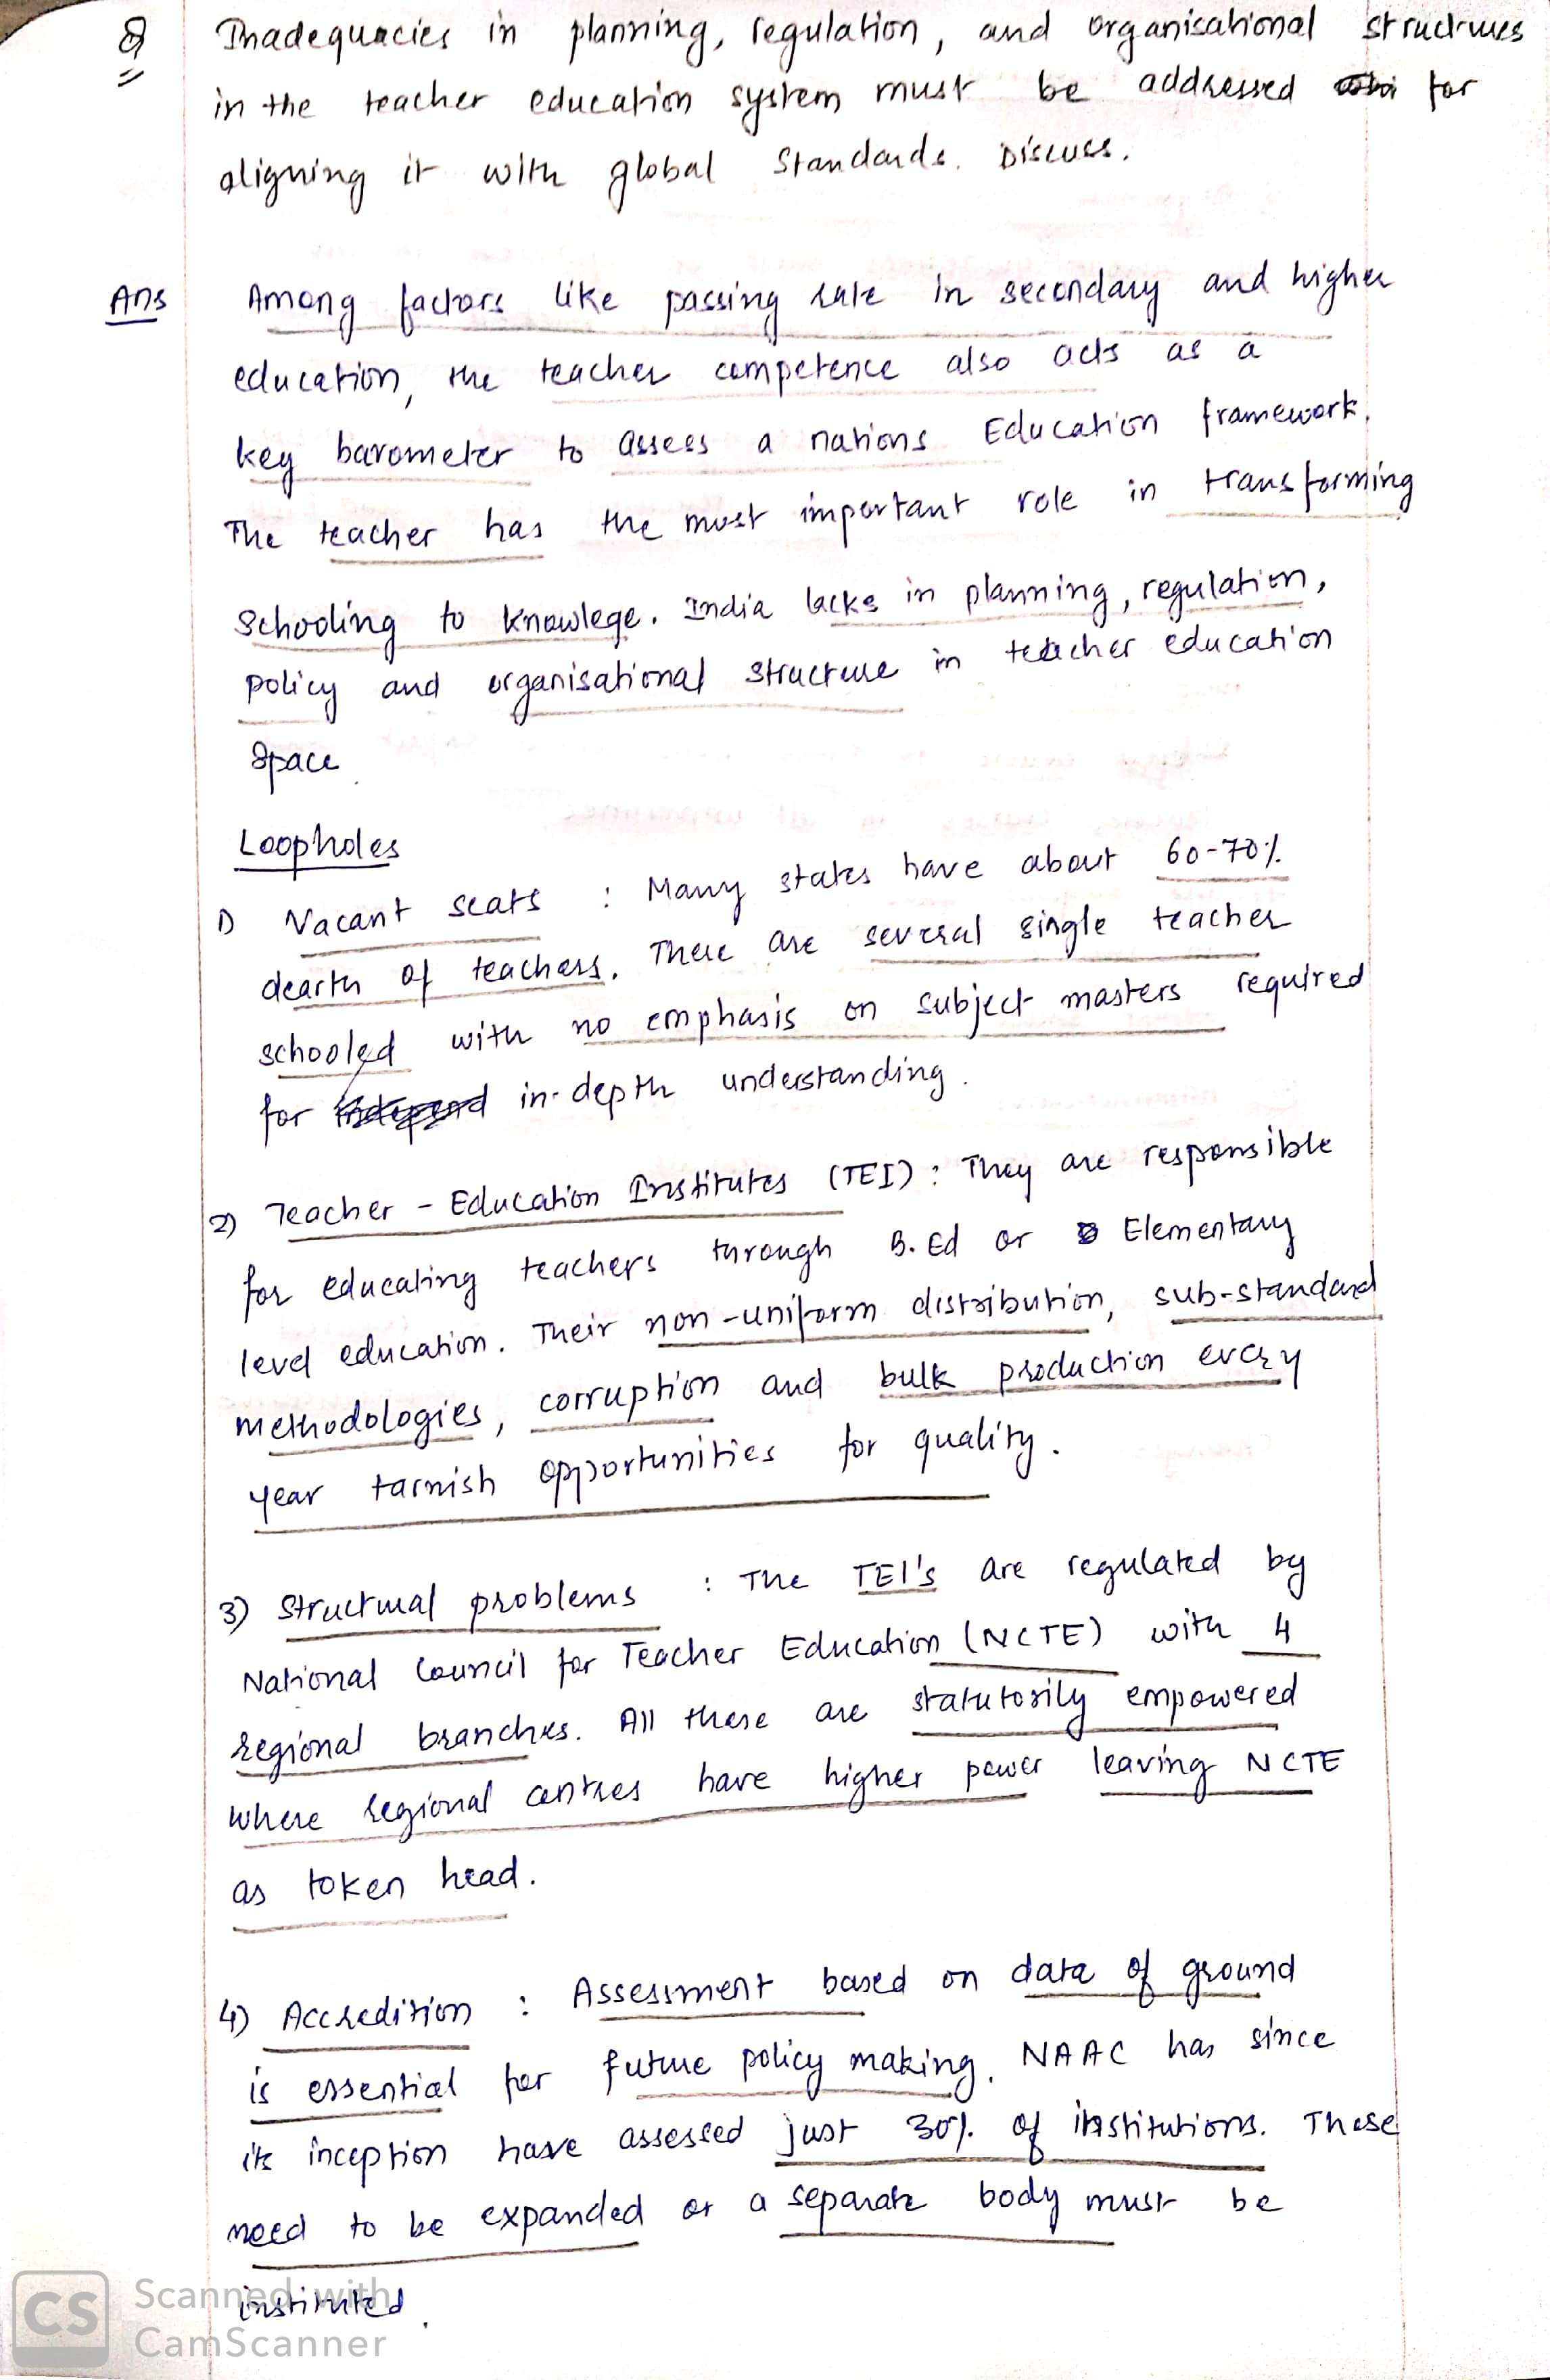 Q Inadequacies in planning, regulation, and organisational structures
in the teacher education system must be addressed for
aligning it with global standards. Discuss.
Ans Among factors like passing rate in secondary and higher
education, the teacher competence also acts as a
key barometer to assess a nations Education framework.
The teacher has the most important role in transforming
Schooling to knowlege. India lacks in planning, regulation,
policy and organisational structure in teacher education
space
Loopholes
1) Vacant seats : Many states have about 60-70%
dearth of teachers. There are several single teacher
schooled with no emphasis on subject masters required
for in-depth understanding.
2) Teacher - Education Institutes (TEI) : They are responsible
for educating teachers through B.Ed or Elementary
level education. Their non-uniform distribution, sub-standard
methodologies, corruption and bulk production every
year tarnish opportunities for quality.
3) Structural problems : The TEI's are regulated by
National Council for Teacher Education (NCTE) with 4
regional branches. All these are statutorily empowered
where regional centres have higher power leaving NCTE
as token head.
4) Accredition : Assessment based on data of ground
is essential for future policy making. NAAC has since
its inception have assessed just 30% of institutions. These
need to be expanded or a separate body must be
instituted.
CS Scanned with
CamScanner